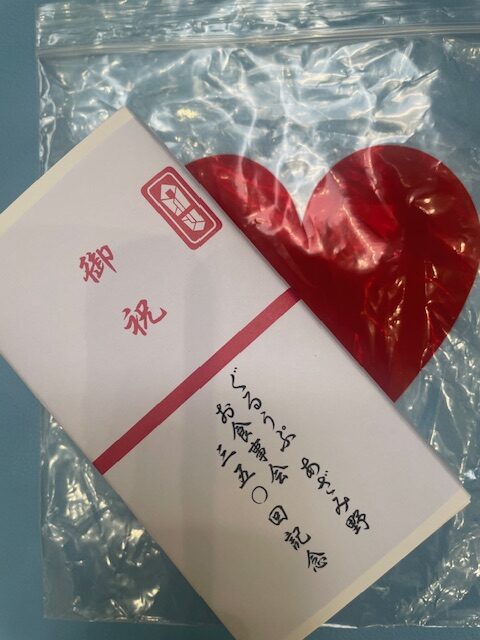 御祝
ぐるうぷ あざみ野
お食事会
三五〇回記念